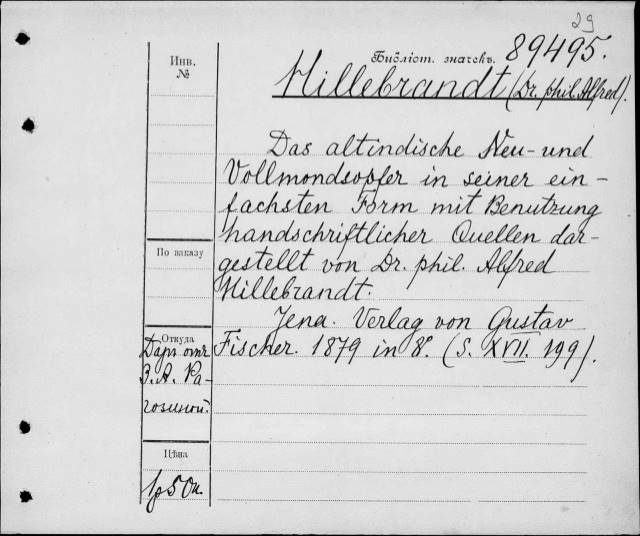 29
Инв.
№
Библіот. значекъ. 89495.
Hillebrandt (Dr. phil. Alfred).
Das altindische Neu- und
Vollmondsopfer in seiner ein-
fachsten Form mit Benutzung
handschriftlicher Quellen dar-
gestellt von Dr. phil. Alfred
Hillebrandt.
Jena. Verlag von Gustav
Fischer. 1879 in 8°. (S. XVII. 199).
По заказу
Откуда
Даръ отъ
З. А. Ра-
гозиной.
Цѣна
1р50к.